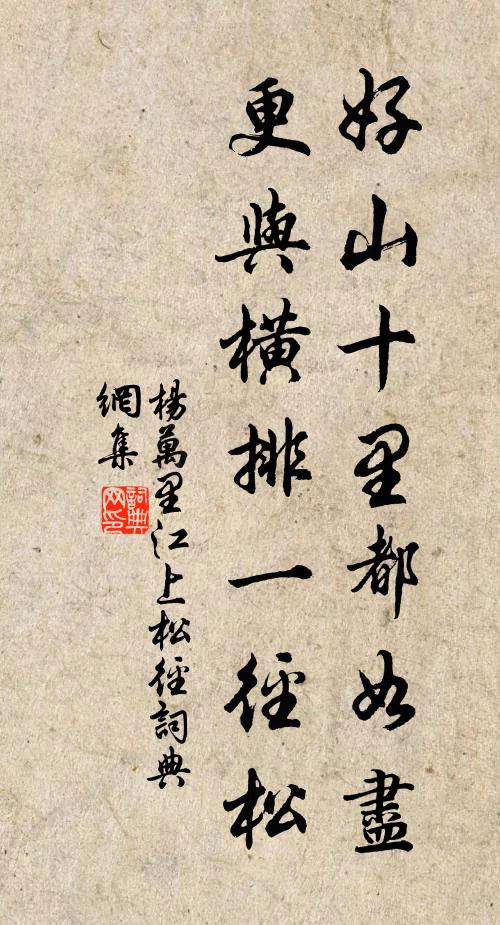 好山十里都如盡
更與橫排一徑松
楊萬里江上松徑詞典
網集
詞典網印